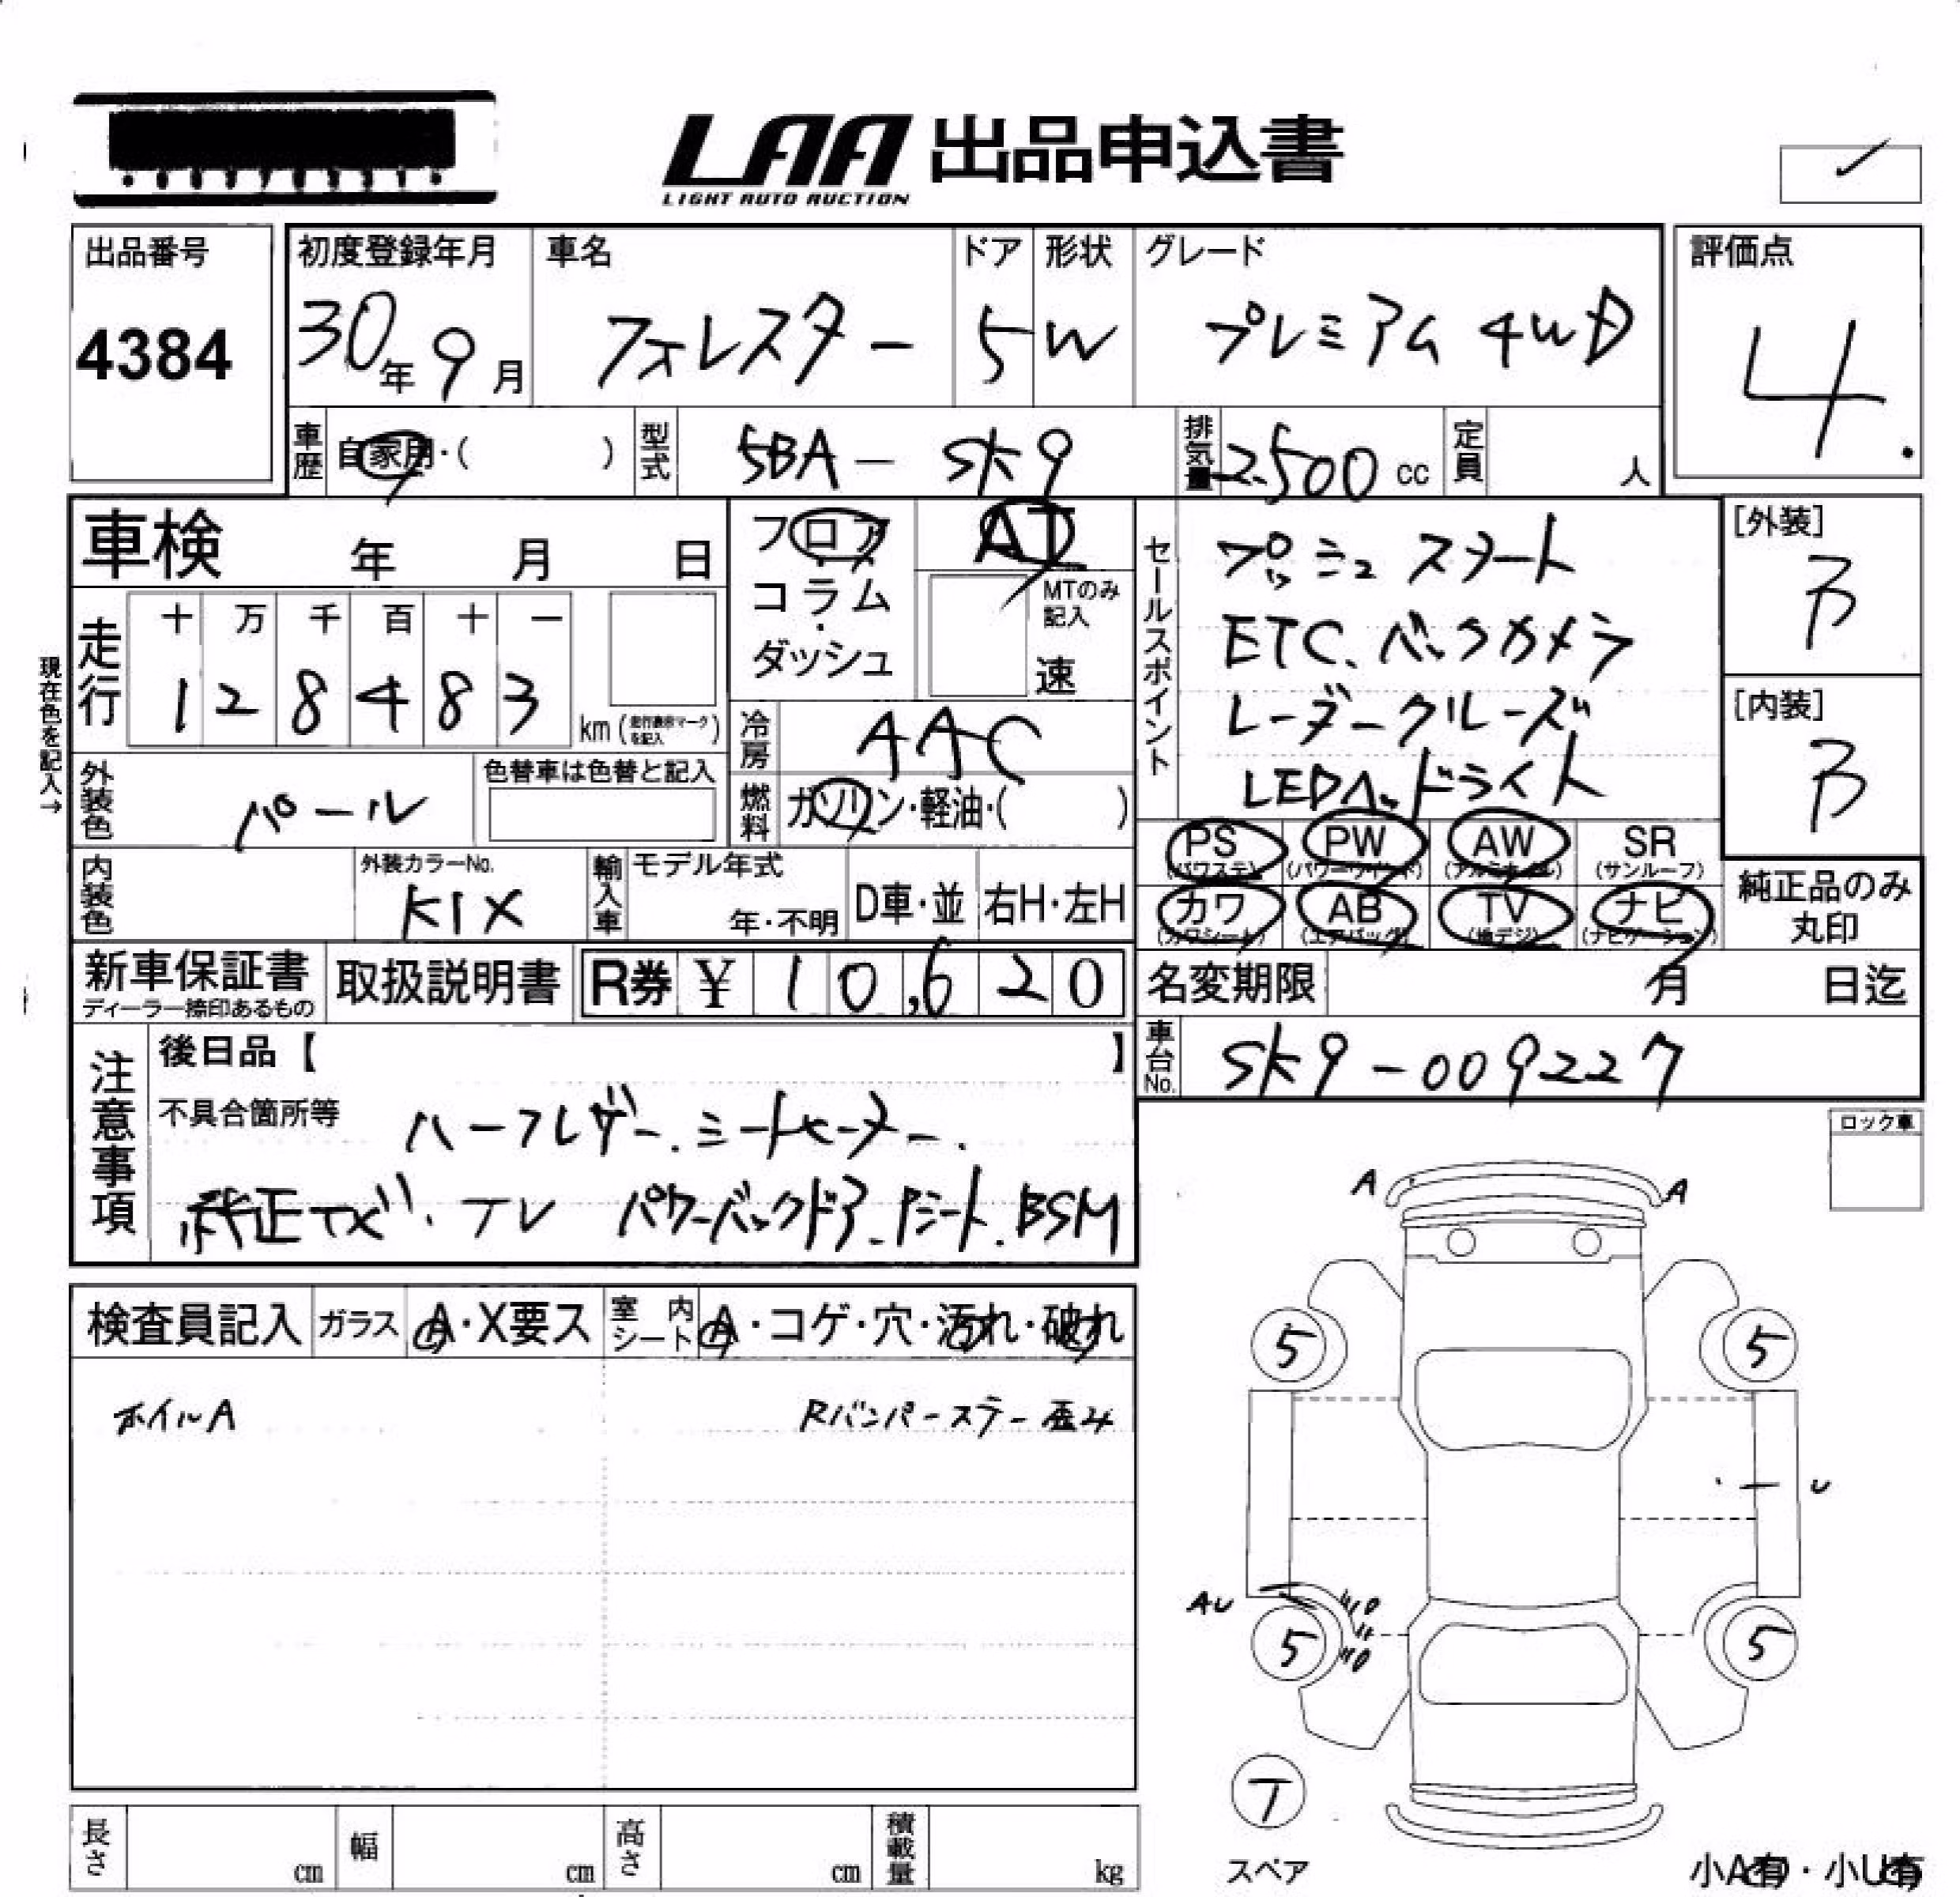 LAA 出品申込書
LIGHT AUTO AUCTION
出品番号
4384
初度登録年月
30年 9月
車名
フォレスター
ドア
5
形状
W
グレード
プレミアム 4WD
評価点
4.
車歴 自家用・( )
型式 5BA - SK9
排気量 2500 cc
定員 人
車検 年 月 日
フロア
コラム
ダッシュ
AT
MTのみ記入
速
現在色を記入→
走行
十 万 千 百 十 一
1 2 8 4 8 3
km (走行表示マークを記入)
冷房 AAC
燃料 ガソリン・軽油・( )
外装色 パール
色替車は色替と記入
内装色
外装カラーNo.
K1X
輸入車
モデル年式
年・不明
D車・並
右H・左H
セールスポイント
プッシュスタート
ETC、バックカメラ
レーダークルーズ
LEDヘッドライト
[外装]
B
[内装]
B
PS (パワステ)
PW (パワーウインド)
AW (アルミホイル)
SR (サンルーフ)
カワ (カワシート)
AB (エアバッグ)
TV (地デジ)
ナビ (ナビゲーション)
純正品のみ丸印
新車保証書
ディーラー捺印あるもの
取扱説明書
R券 ¥ 10,620
名変期限 月 日迄
車台No. SK9-009227
注意事項
後日品【 】
不具合箇所等
ハーフレザー. シートヒーター.
純正ナビ・TV パワーバックドア. Pシート. BSM
ロック車
検査員記入
ガラス A・X要ス
室内シート A・コゲ・穴・汚れ・破れ
ホイルA
Rバンパーステー歪み
A
A
5
5
U
AU
5
5
T
スペア
小A有・小U有
長さ cm
幅 cm
高さ cm
積載量 kg